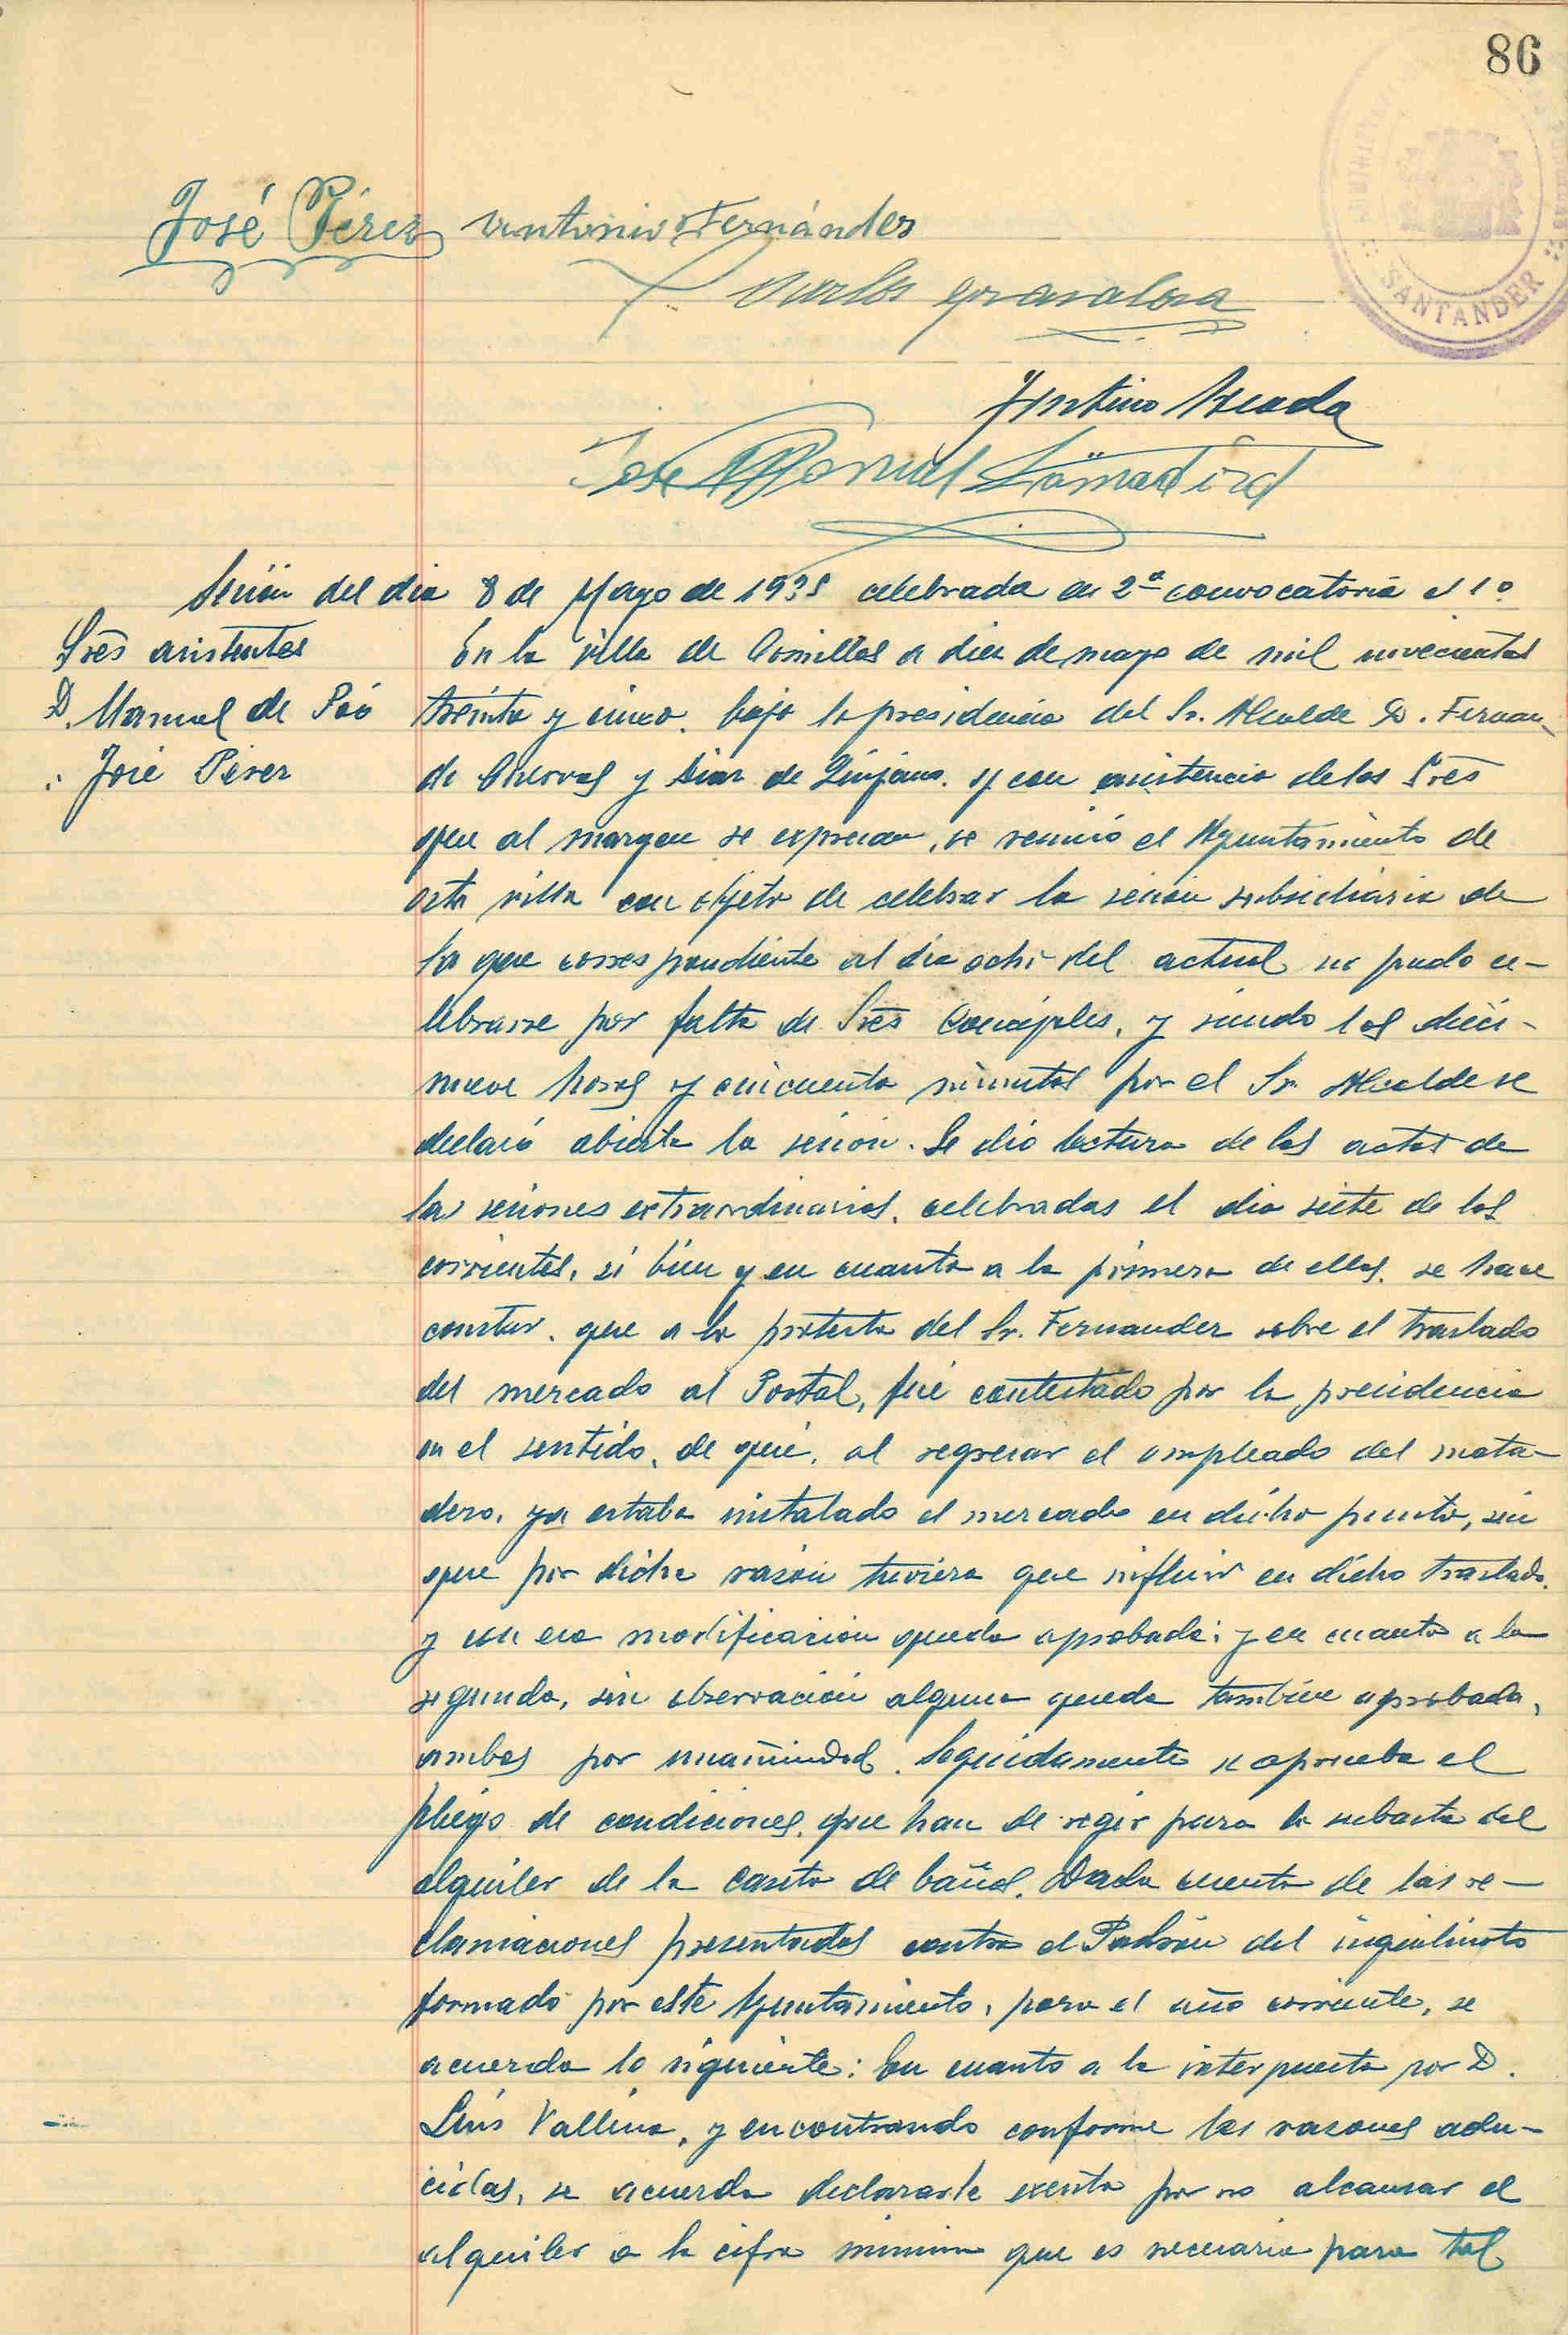 86
SANTANDER
José Pérez Antonio Fernández
Carlos
José Manuel Lamadrid
Sesión del dia 8 de Mayo de 1935 celebrada en 2ª convocatoria el 10
Sres asistentes
D. Manuel de
" José Pérez
En la villa de Comillas a diez de mayo de mil novecientos
treinta y cinco, bajo la presidencia del Sr. Alcalde D. Fernan-
do y Diaz de Quijano, y con asistencia de los Sres
que al margen se expresan, se reunió el Ayuntamiento de
esta villa con objeto de celebrar la sesión subsidiaria de
la que correspondiente al dia ocho del actual no pudo ce-
lebrarse por falta de Sres Concejales, y siendo las dieci-
nueve horas y cincuenta minutos por el Sr. Alcalde se
declaró abierta la sesión. Se dió lectura de las actas de
las sesiones extraordinarias, celebradas el dia siete de los
corrientes, si bien y en cuanto a la primera de ellas, se hace
constar, que a la protesta del Sr. Fernandez sobre el traslado
del mercado al Portal, fué contestado por la presidencia
en el sentido, de qué, al regresar el empleado del mata-
dero, ya estaba instalado el mercado en dicho punto, sin
que por dicha razón tuviera que influir en dicho traslado,
y con esa modificación queda aprobada; y en cuanto a la
segunda, sin observación alguna queda tambien aprobada,
ambas por unanimidad. Seguidamente se aprueba el
pliego de condiciones, que han de regir para la subasta del
alquiler de la caseta de baños. Dada cuenta de las re-
clamaciones presentadas contra el Padrón del inquilinato
formado por este Ayuntamiento, para el año corriente, se
acuerda lo siguiente: En cuanto a la interpuesta por D.
Luis Vallina, y encontrando conforme las razones adu-
cidas, se acuerda declararle exento por no alcanzar el
alquiler a la cifra minima que es necesaria para tal